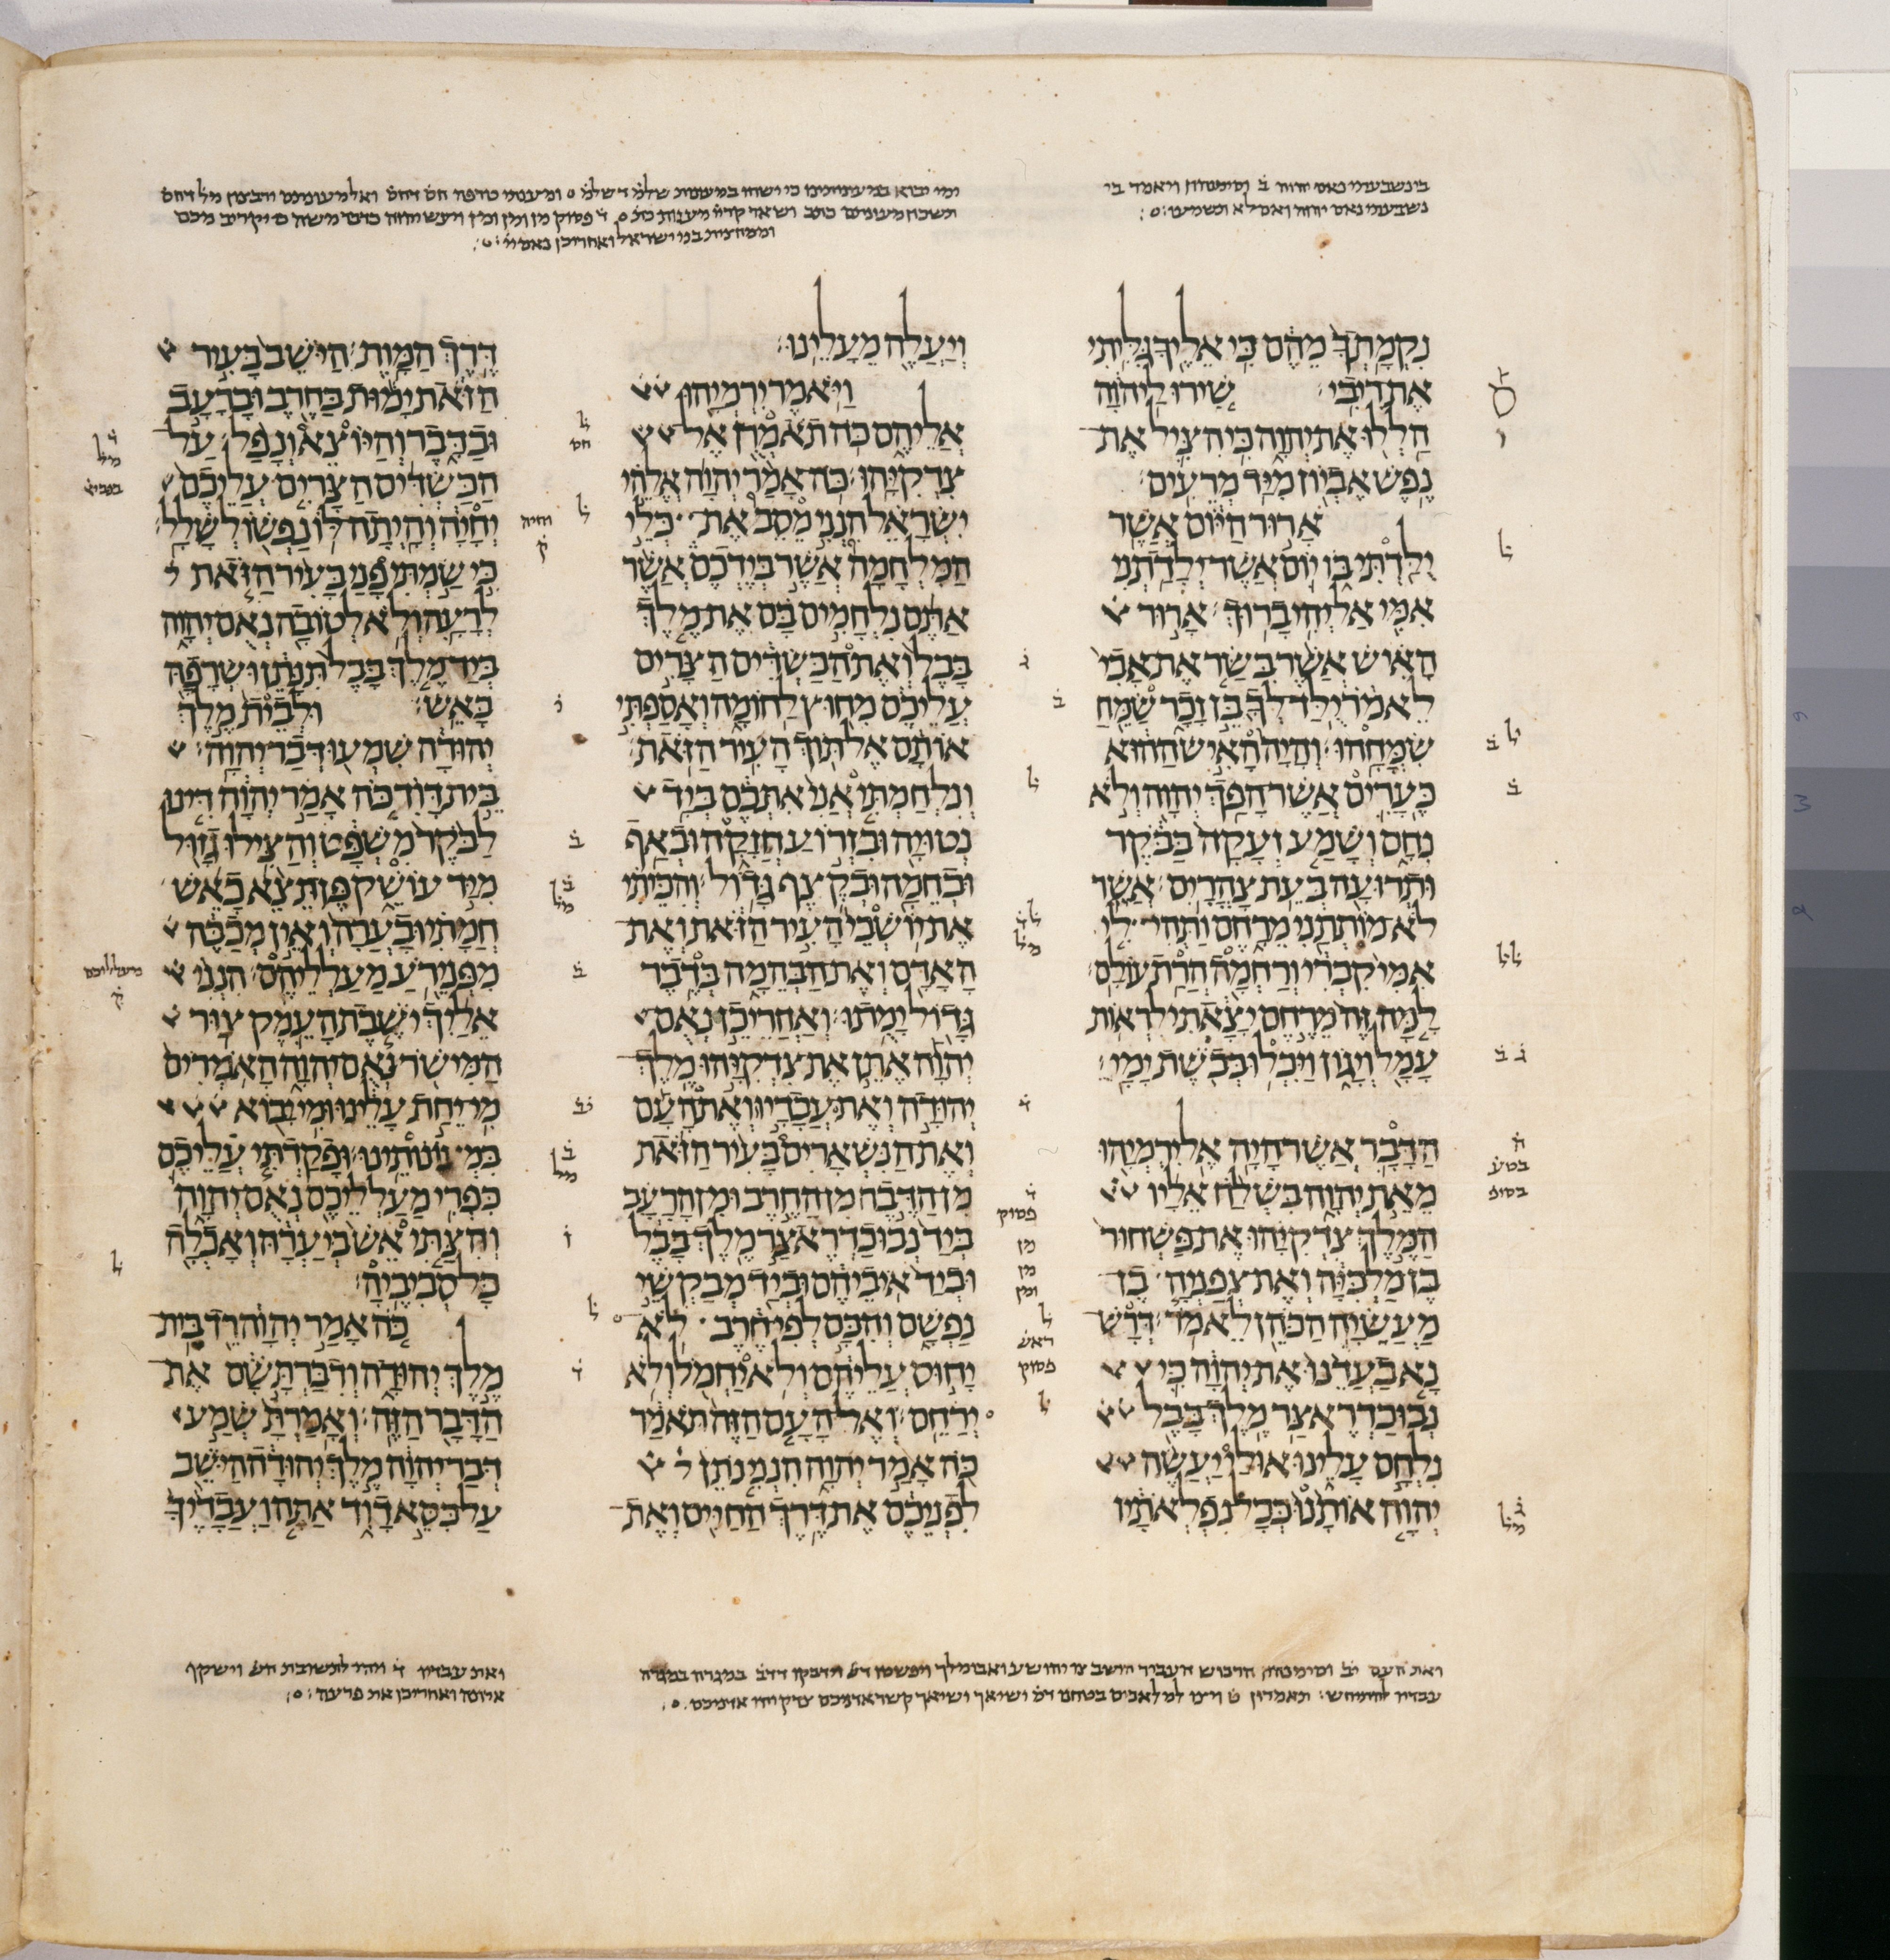 כי נשבעתי נאם יהוה ב וסימנהון ויאמר בי
נשבעתי נאם יהוה ואם לא תשמעו
נקמתך מהם כי אליך גליתי
את ריבי׃ שירו ליהוה
הללו את יהוה כי הציל את
נפש אביון מיד מרעים׃
ארור היום אשר
ילדתי בו יום אשר ילדתני
אמי אל יהי ברוך׃ ארור
האיש אשר בשר את אבי
לאמר ילד לך בן זכר שמח
שמחהו׃ והיה האיש ההוא
כערים אשר הפך יהוה ולא
נחם ושמע זעקה בבקר
ותרועה בעת צהרים׃ אשר
לא מותתני מרחם ותהי לי
אמי קברי ורחמה הרת עולם׃
למה זה מרחם יצאתי לראות
עמל ויגון ויכלו בבשת ימי׃
הדבר אשר היה אל ירמיהו
מאת יהוה בשלח אליו
המלך צדקיהו את פשחור
בן מלכיה ואת צפניה בן
מעשיה הכהן לאמר׃ דרש
נא בעדנו את יהוה כי
נבוכדראצר מלך בבל
נלחם עלינו אולי יעשה
יהוה אותנו ככל נפלאתיו
ויעלה מעלינו׃
ויאמר ירמיהו
אליהם כה תאמרן אל
צדקיהו׃ כה אמר יהוה אלהי
ישראל הנני מסב את כלי
המלחמה אשר בידכם אשר
אתם נלחמים בם את מלך
בבל ואת הכשדים הצרים
עליכם מחוץ לחומה ואספתי
אותם אל תוך העיר הזאת׃
ונלחמתי אני אתכם ביד
נטויה ובזרוע חזקה ובאף
ובחמה ובקצף גדול׃ והכיתי
את יושבי העיר הזאת ואת
האדם ואת הבהמה בדבר
גדול ימתו׃ ואחרי כן נאם
יהוה אתן את צדקיהו מלך
יהודה ואת עבדיו ואת העם
ואת הנשארים בעיר הזאת
מן הדבר מן החרב ומן הרעב
ביד נבוכדראצר מלך בבל
וביד איביהם וביד מבקשי
נפשם והכם לפי חרב לא
יחוס עליהם ולא יחמל ולא
ירחם׃ ואל העם הזה תאמר
כה אמר יהוה הנני נתן
לפניכם את דרך החיים ואת
דרך המות׃ הישב בעיר
הזאת ימות בחרב וברעב
ובדבר והיוצא ונפל על
הכשדים הצרים עליכם
יחיה והיתה לו נפשו לשלל׃
כי שמתי פני בעיר הזאת
לרעה ולא לטובה נאם יהוה
ביד מלך בבל תנתן ושרפה
באש׃ ולבית מלך
יהודה שמעו דבר יהוה׃
בית דוד כה אמר יהוה דינו
לבקר משפט והצילו גזול
מיד עושק פן תצא כאש
חמתי ובערה ואין מכבה
מפני רע מעלליהם׃ הנני
אליך ישבת העמק צור
המישר נאם יהוה האמרים
מי יחת עלינו ומי יבוא
במעונותינו׃ ופקדתי עליכם
כפרי מעלליכם נאם יהוה
והצתי אש ביערה ואכלה
כל סביביה׃
כה אמר יהוה רד בית
מלך יהודה ודברת שם את
הדבר הזה׃ ואמרת שמע
דבר יהוה מלך יהודה הישב
על כסא דוד אתה ועבדיך
ואת עבדיו ד והיו לתשובת
ואחריכן את פרעה